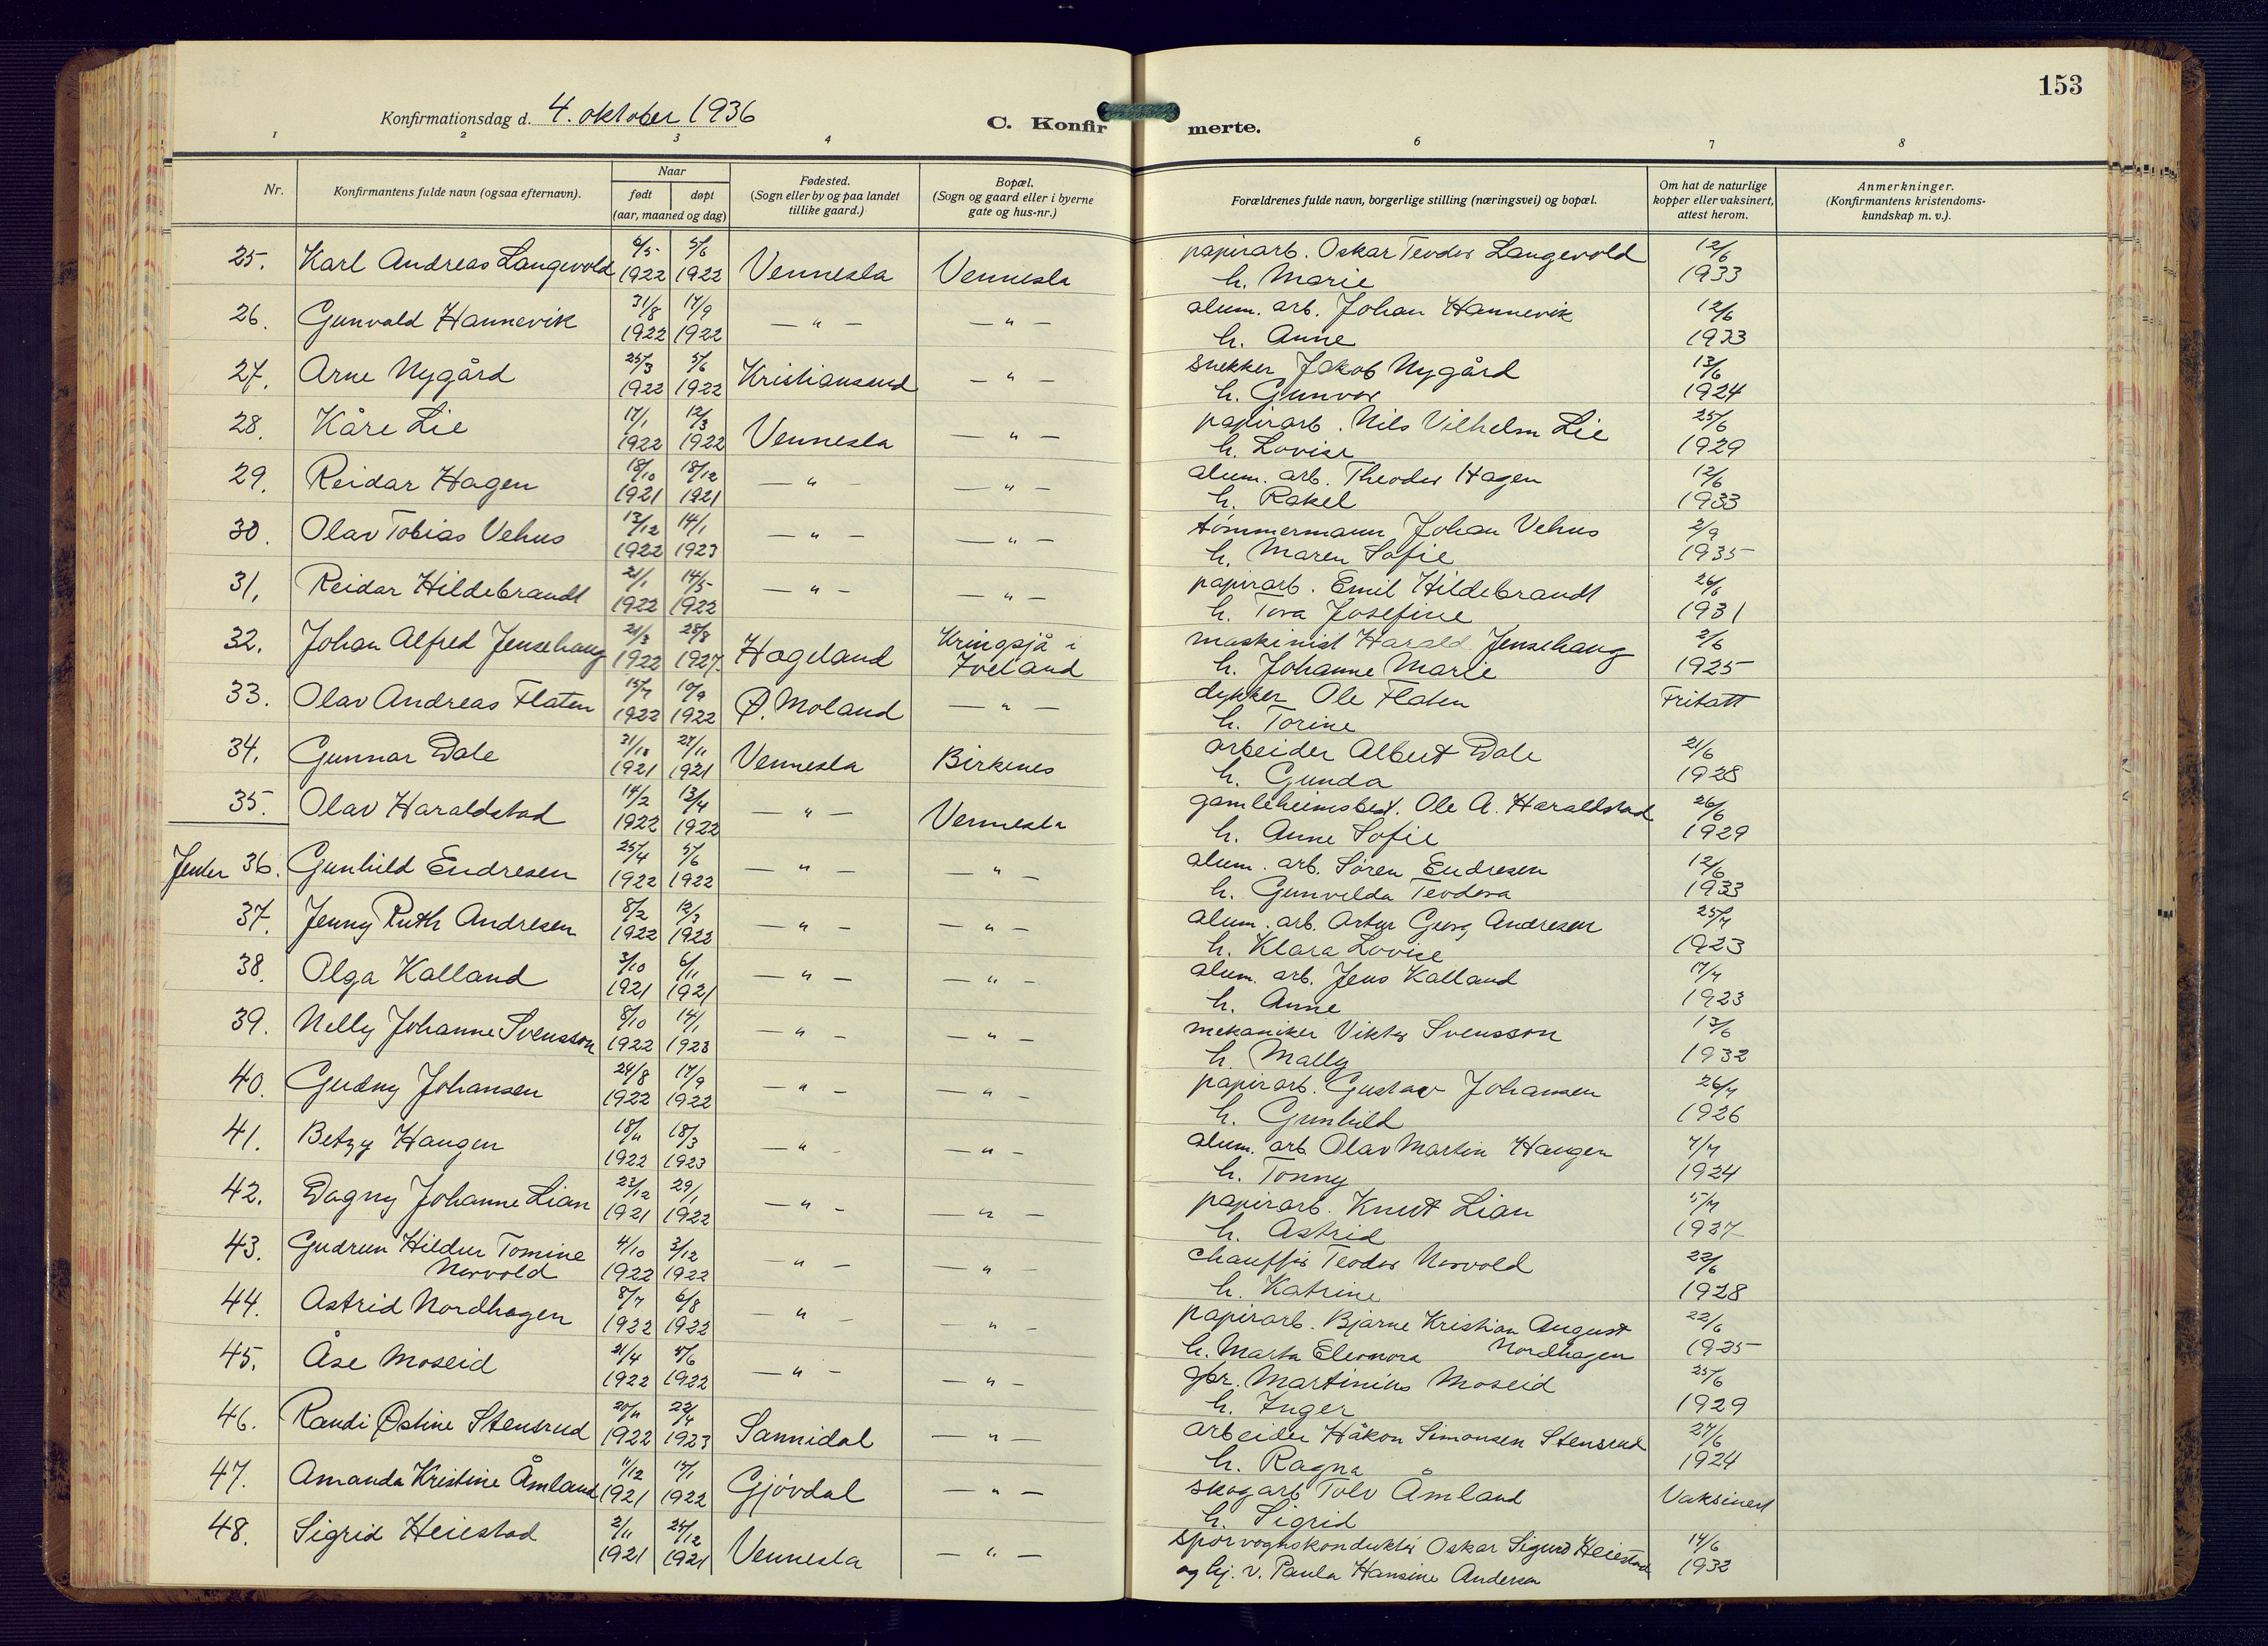 153
Konfirmationsdag d. 4. oktober 1936
C. Konfirmerte.
1 2 3 4 6 7 8
Nr. Konfirmantens fulde navn (ogsaa efternavn). Naar født døpt (aar, maaned og dag) Fødested. (Sogn eller by og paa landet tillike gaard.) Bopæl. (Sogn og gaard eller i byerne gate og hus-nr.) Forældrenes fulde navn, borgerlige stilling (næringsvei) og bopæl. Om hat de naturlige kopper eller vaksinert, attest herom. Anmerkninger. (Konfirmantens kristendoms-kundskap m. v.).
25. Karl Andreas Langevold 6/5 1922 5/6 1922 Vennesla Vennesla papirarb. Oskar Teodor Langevold 12/6
h. Marie 1933
26. Gunvald Hannevik 31/8 1922 17/9 1922 — " — — " — alum. arb. Johan Hannevik 12/6
h. Anne 1933
27. Arne Nygård 25/3 1922 5/6 1922 Kristiansand — " — snekker Jakob Nygård 13/6
h. Gunvor 1924
28. Kåre Lie 17/1 1922 12/3 1922 Vennesla — " — papirarb. Nils Vilhelm Lie 25/6
h. Lovise 1929
29. Reidar Hagen 18/10 1921 18/12 1921 — " — — " — alum. arb. Theodor Hagen 12/6
h. Rakel 1933
30. Olav Tobias Vehus 13/12 1922 14/1 1923 — " — — " — tømmermann Johan Vehus 2/9
h. Maren Sofie 1935
31. Reidar Hildebrandt 21/1 1922 14/5 1922 — " — — " — papirarb. Emil Hildebrandt 26/6
h. Tora Josefine 1931
32. Johan Alfred Jensehaug 21/3 1922 28/8 1927. Hægeland Kringsjå i Iveland maskinist Harald Jensehaug 2/6
h. Johanne Marie 1925
33. Olav Andreas Flaten 15/7 1922 10/9 1922 Ø. Moland — " — dykker Ole Flaten Fritatt
h. Torine
34. Gunnar Dale 31/10 1921 27/11 1921 Vennesla Birkenes arbeider Albert Dale 21/6
h. Gunda 1928
35. Olav Haraldstad 14/2 1922 13/4 1922 — " — Vennesla gamleheimsbest. Ole A. Haraldstad 26/6
h. Anne Sofie 1929
Jenter 36. Gunhild Endresen 25/4 1922 5/6 1922 — " — — " — alum. arb. Søren Endresen 12/6
h. Gunvilda Teodora 1933
37. Jenny Ruth Andresen 8/2 1922 12/3 1922 — " — — " — alum. arb. Artur Georg Andresen 25/7
h. Klara Lovise 1923
38. Olga Kalland 3/10 1921 6/11 1921 — " — — " — alum. arb. Jens Kalland 17/7
h. Anne 1923
39. Nelly Johanne Svensson 8/10 1922 14/1 1923 — " — — " — mekaniker Viktor Svensson 13/6
h. Mally 1932
40. Gudny Johansen 24/8 1922 17/9 1922 — " — — " — papirarb. Gustav Johansen 26/7
h. Gunhild 1926
41. Betzy Haugen 18/11 1922 18/3 1923 — " — — " — alum. arb. Olav Martin Haugen 7/7
h. Tonny 1924
42. Dagny Johanne Lian 23/12 1921 29/1 1922 — " — — " — papirarb. Knut Lian 5/7
h. Astrid 1927
43. Gudrun Hildur Tomine Norvold 4/10 1922 3/12 1922 — " — — " — chauffør Teodor Norvold 22/6
h. Katrine 1928
44. Astrid Nordhagen 8/7 1922 6/8 1922 — " — — " — papirarb. Bjarne Kristian August Nordhagen 22/6
h. Marta Eleonora 1925
45. Åse Moseid 21/4 1922 5/6 1922 — " — — " — gbr. Martinius Moseid 25/6
h. Inger 1929
46. Randi Østine Stensrud 20/11 1922 22/4 1923 Sannidal — " — arbeider Håkon Simonsen Stensrud 27/6
h. Ragna 1924
47. Amanda Kristine Åmland 11/12 1921 15/1 1922 Gjøvdal — " — skogarb Tolv Åmland Vaksinert
h. Sigrid
48. Sigrid Heiestad 2/11 1921 26/12 1921 Vennesla — " — sporvognskonduktør Oskar Sigurd Heiestad 14/6
og hj. v. Paula Hansine Andersen 1932